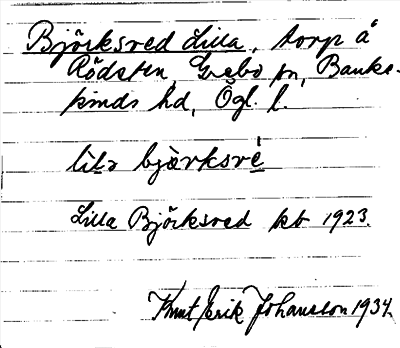 Björksred Lilla, torp å
Rödsten, Grebo sn, Bankе-
kinds hd, Ögl. l.
lịḷa bjærksré
Lilla Björksred kb 1923.
Knut Erik Johansson 1934.